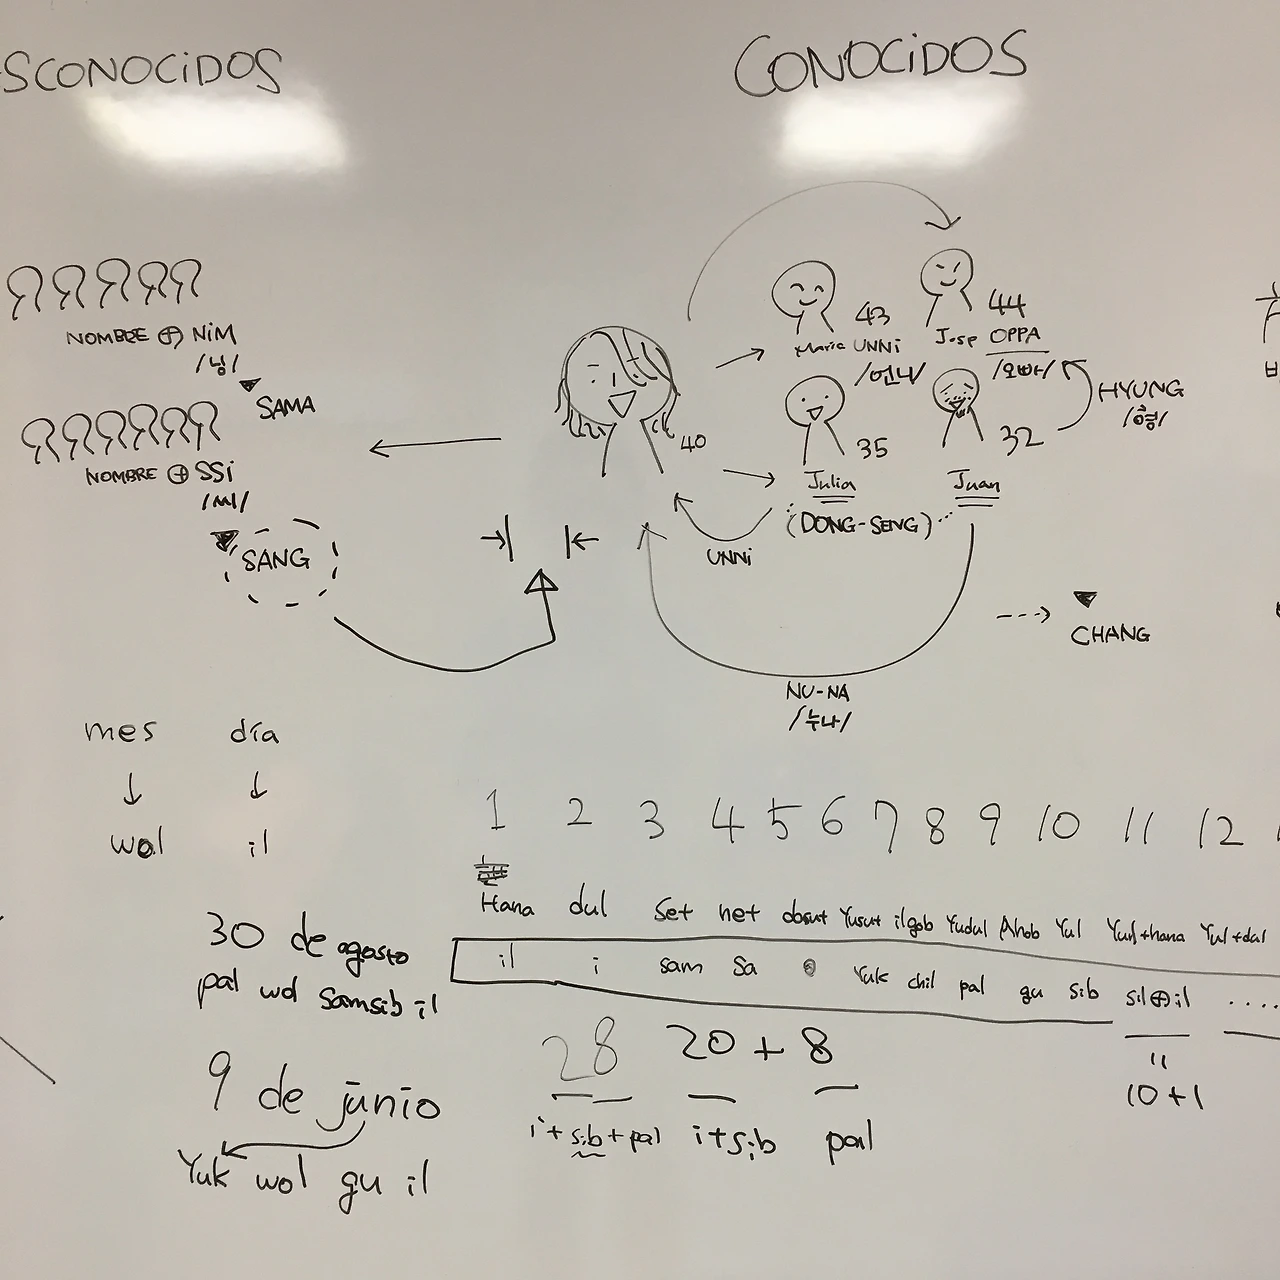 SCONOCIDOS
CONOCIDOS
NOMBRE ⊕ NIM
/님/
SAMA
NOMBRE ⊕ SSI
/씨/
SANG
40
43
Maria UNNI
/언니/
44
Jose OPPA
/오빠/
HYUNG
/형/
35
Julia
32
Juan
(DONG-SENG)
UNNI
NU-NA
/누나/
CHANG
mes día
wol il
1 2 3 4 5 6 7 8 9 10 11 12
Hana dul Set net dasut Yusut ilgob Yudul Ahob Yul Yul+hana Yul+dul
il i sam Sa o Yuk chil pal gu sib sib⊕il ....
10+1
30 de agosto
pal wol Samsib il
9 de junio
Yuk wol gu il
28 20+8
i+sib+pal i+sib pal